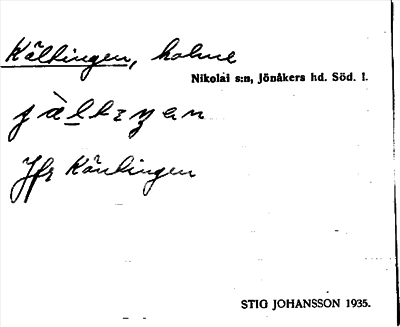 Kältingen, holme
Nikolai s:n, Jönåkers hd. Söd. l.
Jfr Käntingen
STIG JOHANSSON 1935.